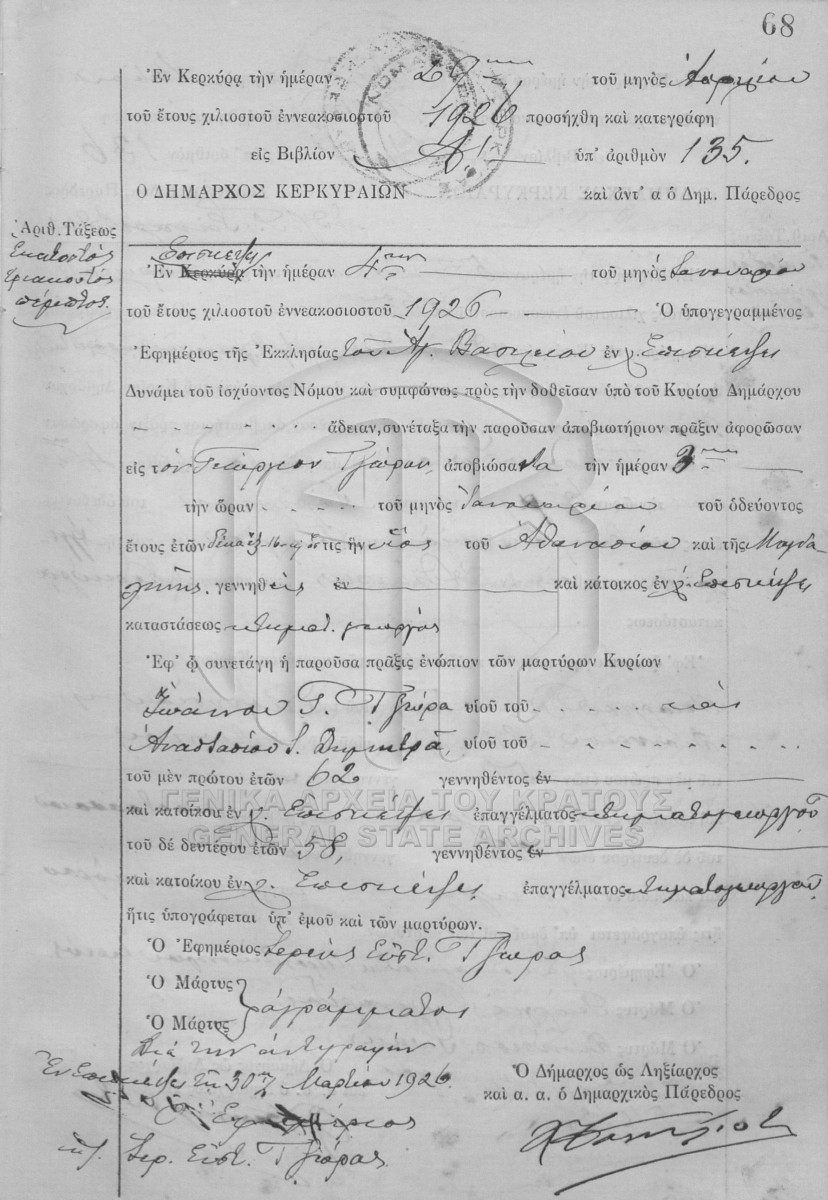 68
Ἐν Κερκύρᾳ τὴν ἡμέραν 28ην τοῦ μηνὸς Ἀπριλίου
τοῦ ἔτους χιλιοστοῦ ἐννεακοσιοστοῦ 1926 προσήχθη καὶ κατεγράφη
εἰς Βιβλίον Α! ὑπ' ἀριθμὸν 135.
Ο ΔΗΜΑΡΧΟΣ ΚΕΡΚΥΡΑΙΩΝ καὶ ἀντ' α ὁ Δημ. Πάρεδρος
Ἀριθ. Τάξεως
Ἑκατοστὸς
τριακοστὸς
πέμπτος.
Ἐπισκέψει
Ἐν Κερκύρᾳ τὴν ἡμέραν 4ην τοῦ μηνὸς Ἰανουαρίου
τοῦ ἔτους χιλιοστοῦ ἐννεακοσιοστοῦ 1926 Ὁ ὑπογεγραμμένος
Ἐφημέριος τῆς Ἐκκλησίας τοῦ Ἁγ. Βασιλείου ἐν χ. Ἐπισκέψει
Δυνάμει τοῦ ἰσχύοντος Νόμου καὶ συμφώνως πρὸς τὴν δοθεῖσαν ὑπὸ τοῦ Κυρίου Δημάρχου
ἄδειαν, συνέταξα τὴν παροῦσαν ἀποβιωτήριον πρᾶξιν ἀφορῶσαν
εἰς τὸν Γεώργιον Τζώραν, ἀποβιώσαντα τὴν ἡμέραν 3ην
τὴν ὥραν τοῦ μηνὸς Ἰανουαρίου τοῦ ὁδεύοντος
ἔτους ἐτῶν δέκα ἓξ -16- ὅςτις ἦν υἱὸς τοῦ Ἀθανασίου καὶ τῆς Μαγδα-
ληνῆς. γεννηθεὶς ἐν καὶ κάτοικος ἐν χ. Ἐπισκέψει
καταστάσεως κτηματ. γεωργὸς
Ἐφ' ᾧ συνετάγη ἡ παροῦσα πρᾶξις ἐνώπιον τῶν μαρτύρων Κυρίων
Ἰωάννου Γ. Τζώρα υἱοῦ τοῦ
Ἀναστασίου Δημητρᾶ, υἱοῦ τοῦ
τοῦ μὲν πρώτου ἐτῶν 62 γεννηθέντος ἐν
καὶ κατοίκου ἐν χ. Ἐπισκέψει ἐπαγγέλματος κτηματογεωργοῦ
ΓΕΝΙΚΑ ΑΡΧΕΙΑ ΤΟΥ ΚΡΑΤΟΥΣ
GENERAL STATE ARCHIVES
τοῦ δὲ δευτέρου ἐτῶν 58, γεννηθέντος ἐν
καὶ κατοίκου ἐν χ. Ἐπισκέψει, ἐπαγγέλματος κτηματογεωργοῦ
ἥτις ὑπογράφεται ὑπ' ἐμοῦ καὶ τῶν μαρτύρων.
Ὁ Ἐφημέριος Ἱερεὺς Εὐστ. Τζώρας
Ὁ Μάρτυς
ἀγράμματος
Ὁ Μάρτυς
Διὰ τὴν ἀντιγραφὴν
Ἐν Ἐπισκέψει τῇ 30ῃ Μαρτίου 1926
Ὁ Ἐφημέριος
Ἱερ. Εὐστ. Τζώρας
Ὁ Δήμαρχος ὡς Ληξίαρχος
καὶ α. α. ὁ Δημαρχικὸς Πάρεδρος